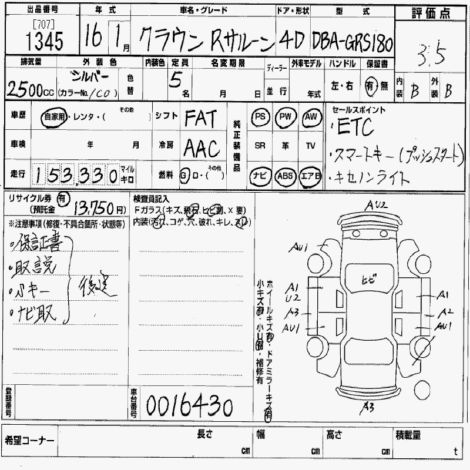 出品番号 年式 車名・グレード ドア・形状 型式 評価点
[707]
1345 16年 1月 クラウン Rサルーン 4D DBA-GRS180 3.5
排気量 外装色 内装色 定員 名変期限 ディーラー 外車モデル ハンドル 保証書 内装 B 外装 B
2500cc シルバー (カラーNo./CO) 色替 5 並行 年式 左・右 有・無
車歴 自家用・レンタ・(その他) シフト FAT 純正装備品 PS PW AW セールスポイント
・ETC
車検 年 月 冷房 AAC SR 革 TV ・スマートキー(プッシュスタート)
走行 153,330 マイル キロ 燃料 G・ロ・(その他) ナビ ABS エアB ・キセノンライト
リサイクル券 有
(預託金) 13,750円
検査員記入
Fガラス(キズ,飛石,ヒビ割,×要)
内装(汚れ,コゲ,穴,破れ,キレ,スレ)
※注意事項(修復・不具合箇所・状態等)
・保証書
・取説
・スペアキー
・ナビ取
後送
小キズ有・小凹有・補修有
ホイールキズ有・ドアミラーキズ有
AU2
AU1
ヒビ
A1 A1
U2
A3 A2
AU1 AU1
A3
登録番号 車台番号 0016430
希望コーナー 長さ cm 幅 cm 高さ cm 積載量 t